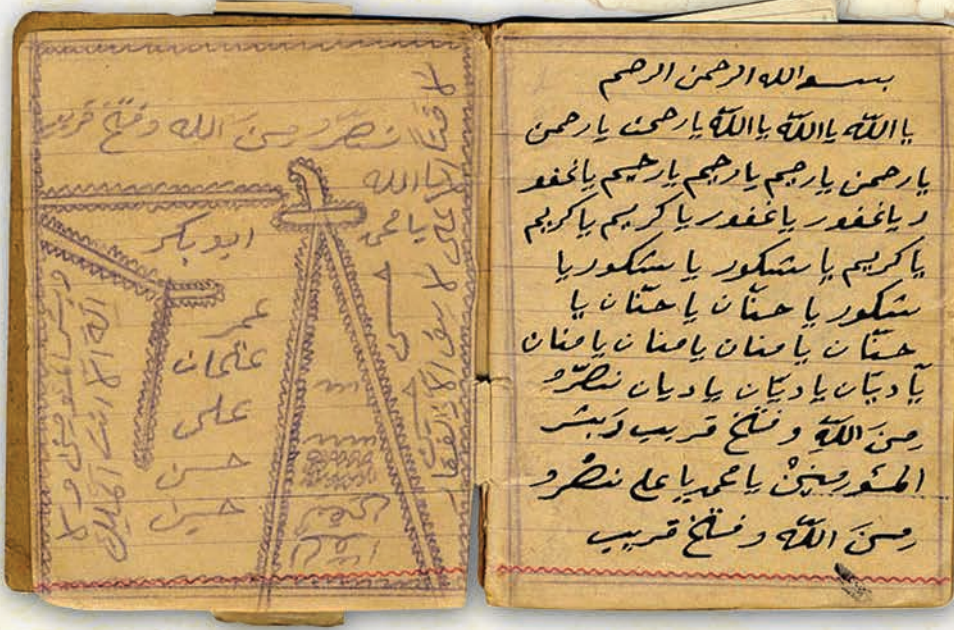 بسم الله الرحمن الرحيم
يا اللّه يا اللّه يا اللّه يا رحمن يا رحمن
يا رحمن يا رحيم يا رحيم يا رحيم يا غفو
ر يا غفور يا غفور يا كريم يا كريم
يا كريم يا شكور يا شكور يا
شكور يا حنّان يا حنّان يا
حنّان يا منان يا منان يا منان
يا ديّان يا ديّان يا ديان نصرٌ
من الله و فتح قريب وبشر
المئومنين يا محمد يا علي نصر
من اللّه و فتح قريب
نصر من الله وفتح قريب
يا الله
يا محمد
ابو بكر
عمر
عثمان
علي
حسن
حسين
لا فتا الا علي لا سيف الا
وبشر المئومنين و لا
اله الا